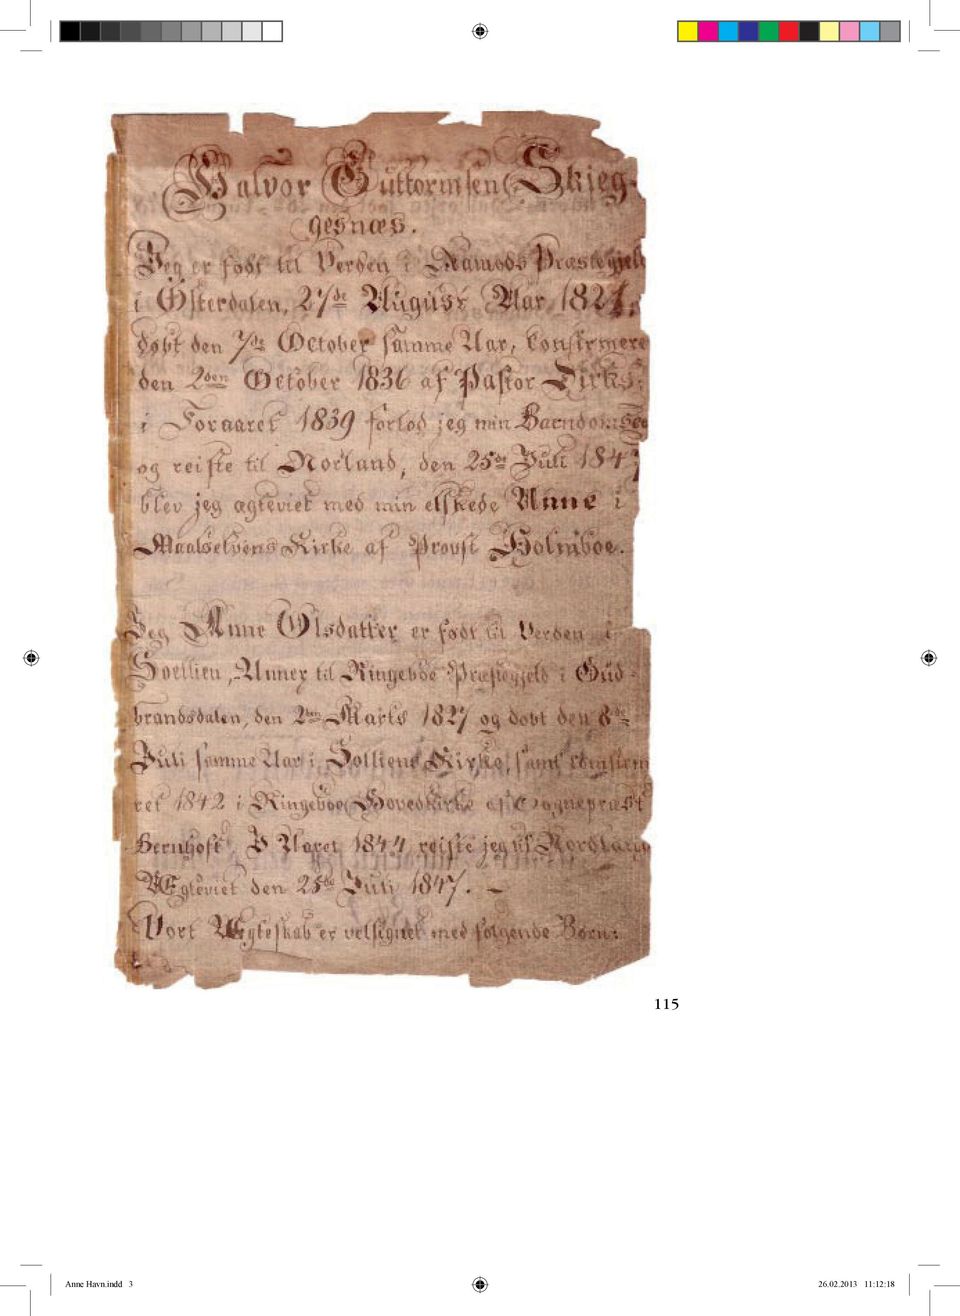 Halvor Guttormsen Skjeg-
gesnæs.
Jeg er født til Verden i Præstegjeld
i Østerdalen, 27de August Aar 1821,
døbt den 7de October samme Aar, konfirmere
den 2den October 1836 af Pastor Dirks,
i Foraaret 1839 forlod jeg min
og reiste til Norland, den 25de Juli 1847
blev jeg ægteviet med min elskede Anne i
Maalselvens Kirke af Provst Holmboe.
Jeg Anne Olsdatter er født til Verden i
Sollien, Annex til Ringeboe Præstegjeld i Gud-
brandsdalen, den 2den Marts 1827 og døbt den 8de
Juli samme Aar i Solliens Kirke, samt
ret 1842 i Ringeboe Hovedkirke af Sognepræst
Bernhoft, I Aaret 1844 reiste jeg til
Ægteviet den 25de Juli 1847. –
Vort Ægteskab er velsignet med følgende Børn:
115
Anne Havn.indd 3 26.02.2013 11:12:18